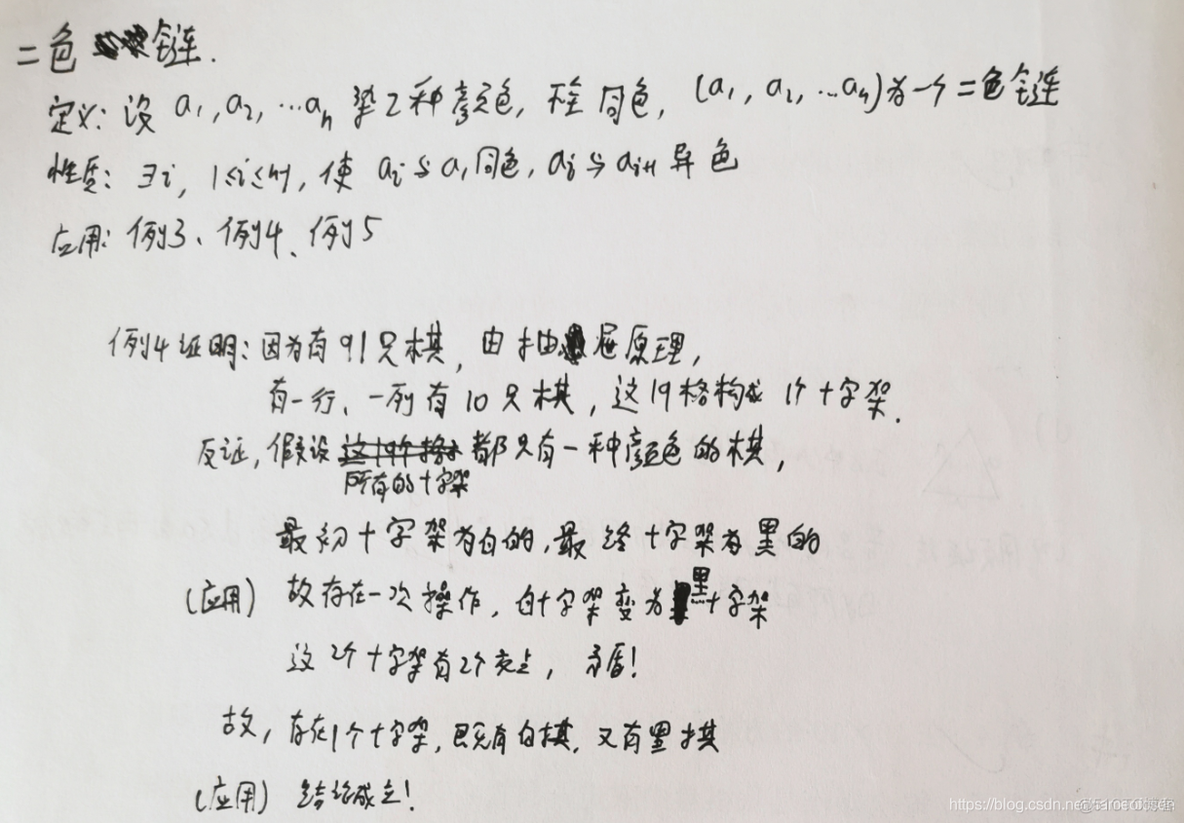 二色链.
定义: 设 a₁, a₂, …aₙ 染2种颜色, 不全同色, (a₁, a₂, …aₙ)为一个二色链
性质: ∃i, 1≤i≤n-1, 使 aᵢ与a₁同色, aᵢ与aᵢ₊₁异色
应用: 例3、例4、例5
例4证明: 因为有91只棋, 由抽屉原理,
有一行、一列有10只棋, 这19格构成1个十字架.
反证, 假设所有的十字架都只有一种颜色的棋,
最初十字架为白的, 最终十字架为黑的
(应用) 故存在一次操作, 白十字架变为黑十字架
这2个十字架有2个交点, 矛盾!
故, 存在1个十字架, 既有白棋, 又有黑棋
(应用) 结论成立!
https://blog.csdn.net/